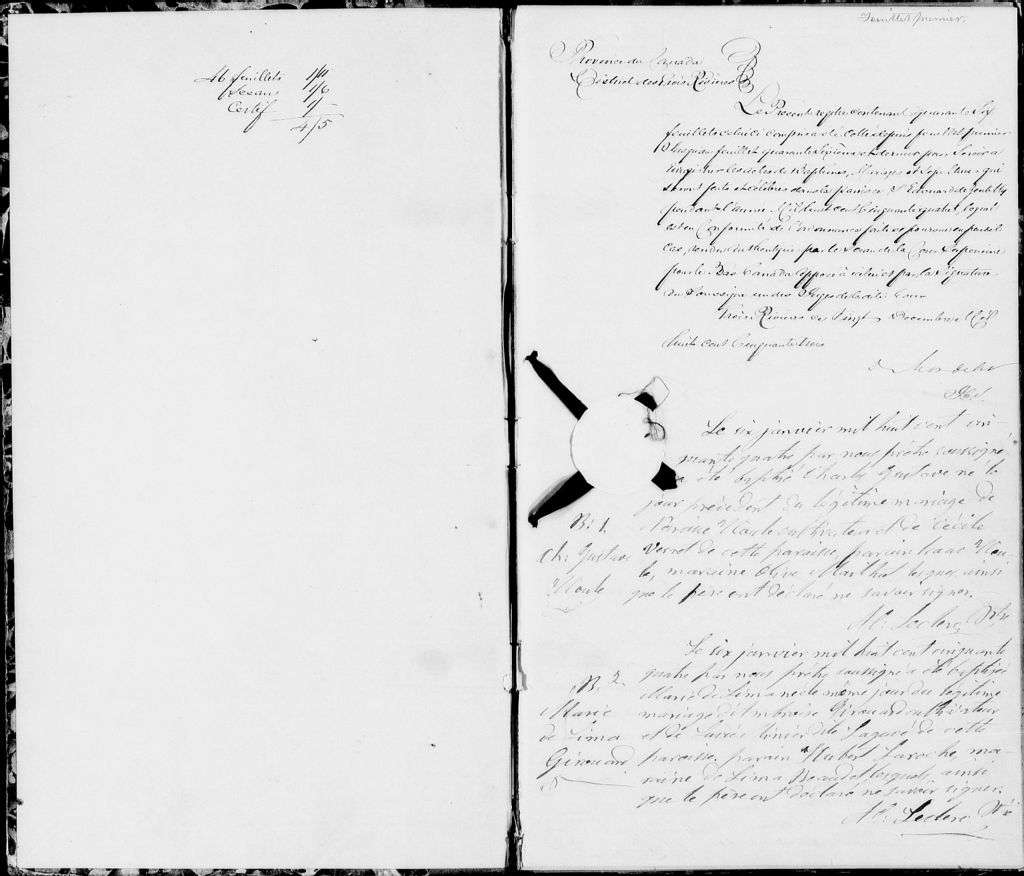 46 feuillets 1/11
Sceau 1/6
Certif 1/
4/5
Feuillet premier.
Province du Canada
District des Trois Rivières
Le Present registre contenant quarante Six
feuillets celui ci compris a été cotté depuis feuillet premier
Jusqu'au feuillet quarante Sixième et dernier pour Servir a
enregistrer les actes de Baptêmes, Mariages et Sépultures qui
seront faits et célébrés dans la paroisse St Edouard de Gentilly
pendant l'année Mil huit cent Cinquante quatre, lequel
est en Conformité de l'ordonnance faite et pourvue en pareil
cas, rendu authentique par le Sceau de la Cour Superieure
pour le Bas Canada apposé à celui ci et par la Signature
du Soussigné un des Juges de la dite Cour
Trois Rivières ce Vingt Decembre Mil
huit cent Cinquante trois
Le six janvier mil huit cent cin-
quante quatre par nous prêtre soussigné
a été baptisé Charles Gustave né le
jour précédent du légitime mariage de
B. 1. Narcisse Houle cultivateur et de Cécile
Ch: Gustave de cette paroisse, parrain Isaac Hou-
Houle le, marraine Olive lesquels, ainsi
que le père ont déclaré ne savoir signer.
Leclerc Ptre
Le six janvier mil huit cent cinquante
quatre par nous prêtre soussigné a été baptisée
B. 2 Marie de Lima née le même jour du légitime
Marie mariage d'Ambroise Girouard cultivateur
de Lima et de dite Lagacé de cette
Girouard paroisse, parrain Hubert Laroche, ma-
raine de Lima Beaudet lesquels, ainsi
que le père ont déclaré ne savoir signer.
Leclerc Ptre